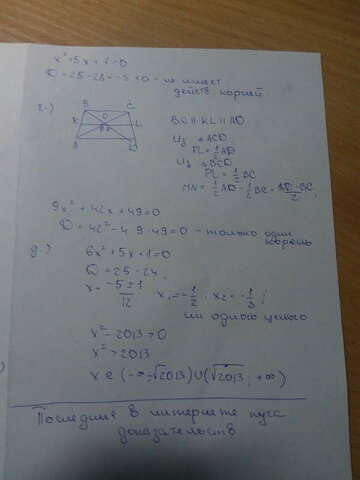 x²+5x+7=0
D=25-28=-3<0 - не имеет
действ. корней
г.)
B C
K O L
A D
BC || KL || AD
Из △ACD
PL = 1/2 AD
Из △BCD
PL = 1/2 BC
MN = 1/2 AD - 1/2 BC = AD-BC/2
9x²+42x+49=0
D=42²-4·9·49=0 - только один
корень
д.)
6x²+5x+1=0
D=25-24
x= -5±1/12 x₁=-1/2; x₂=-1/3;
ни одного целого
x²-2013>0
x²>2013
x∈(-∞;-√2013)∪(√2013; +∞)
Последние в интернете
доказательств